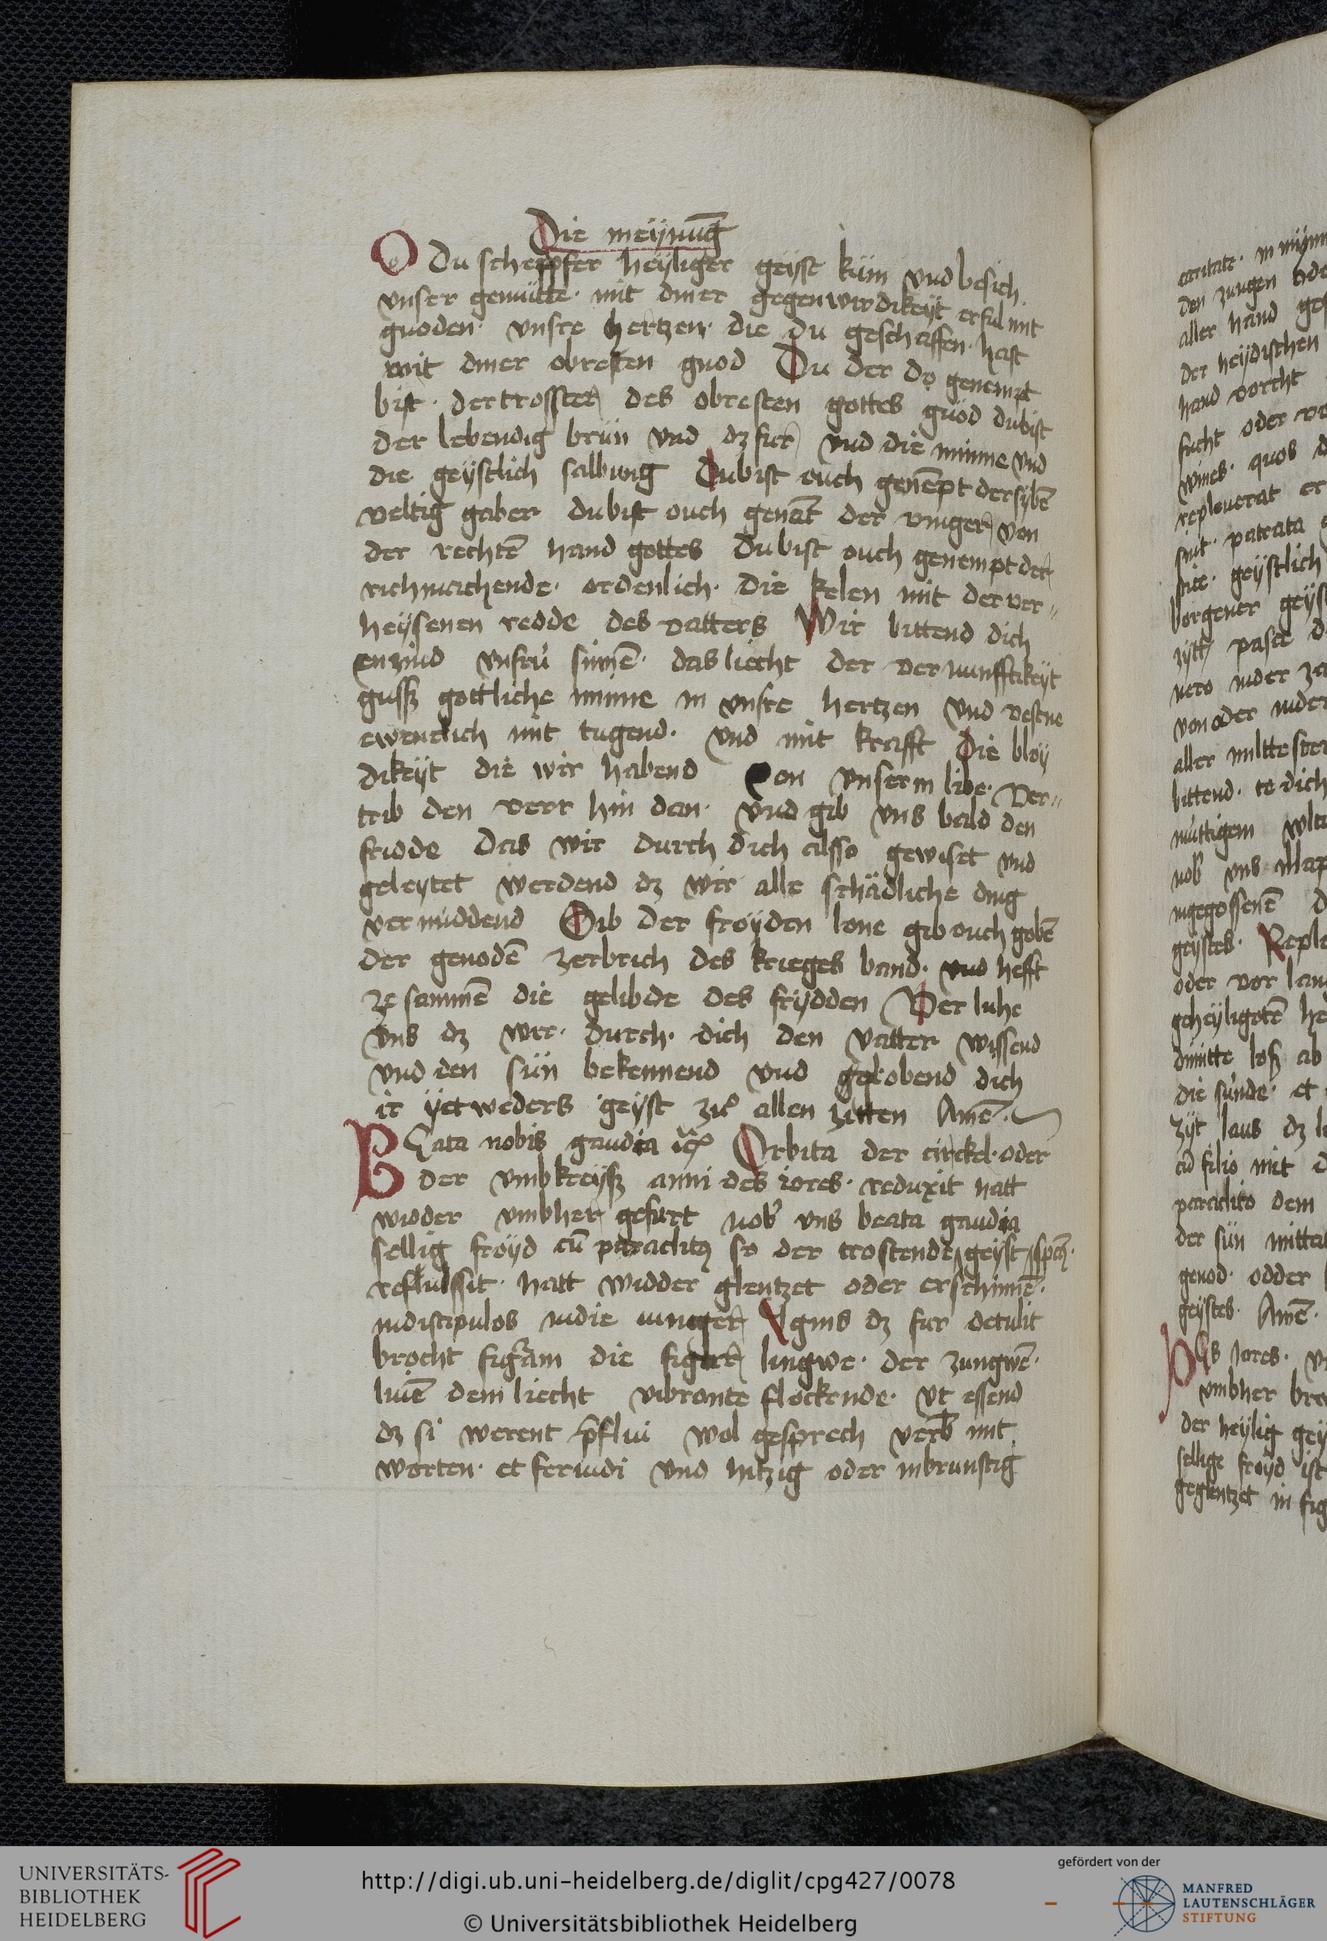 Die meÿnūg
O du schepfer heÿliger geÿst küm vnd besich
vnser gemütte · mit diner gegenwirdikeÿt erful mit
gnoden · vnsre hertzen · die du geschaffen · hast
mit diner obresten gnod Du der do genempt
bist · der trosster des obresten gottes gnod du bist
der lebendig brün vnd dz fur vnd die minne vnd
die geÿstlich salbung Du bist ouch genēpt der sÿbē
veltig gaber du bist ouch genāt der vinger von
der rechtē hand gottes Du bist ouch genempt der
richmachende · ordenlich · die kelen mit der ver-
heÿsenen redde des vatters Wir bittend dich
enzund vnsrū sinnē · das liecht der vernunfftikeÿt
gussz gottliche minne in vnsre hertzen vnd vestne
ewenclich mit tugend · vnd mit krafft die bloÿ
dikeÿt die wir habend von vnserm libe · ver-
trib den verr hin dan · vnd gib vns bald den
fridde das wir durch dich alsso gewiset vnd
geleytet werdend dz wir alle schädliche ding
vermiddend Gib der froÿden lone gib ouch gobē
der genodē zerbrich des krieges band · vnd hefft
ze sammē die gelibde des frÿdden Ver luhe
vns dz wir · durch · dich den vatter wissend
vnd den sün bekennend vnd gelobend dich
ir ÿetweders geÿst zu allen zitten Amē ·
BEata nobis gaudia Orbita der circkel · oder
der vmbkreÿsz anni des iores · reduxit hatt
widder vmbher gefurt nob vns beata gaudia
sellig froÿd cū paraclitꝫ so der trostende geÿst
refulssit · hatt widder glentzet oder erschinnē ·
indiscipulos in die iunger Ignis dz fur detulit
brocht figuram die figur lingwe · der zungwē ·
lucē dem liecht vibrante flockende · vt essend
dz si werent pflui wol gesprech verb mit
worten · et feruidi vnd hitzig oder inbrunstig
caritate · in minn
den zungen
aller hand
der heÿdischen
hand vorcht
sucht oder
vines · quos
repleuerat er
sint · patrata
geÿstlich
borgener geÿst
pasce
vero
von oder
aller miltester
bittend · te dich
muttigem
nob vns
ingegossenē
geÿstes · Reple
oder vor
geheÿligotē
dimitte losz ab
die sunde · et
zÿt laus dz
cū filio mit
paraclito dem
der sün
gnod · odder
geÿstes · Amē ·
iores ·
vmbher
der heÿlig geÿ
sellige froÿd ist
geglentzet in fig
UNIVERSITÄTS-
BIBLIOTHEK
HEIDELBERG
http://digi.ub.uni-heidelberg.de/diglit/cpg427/0078
© Universitätsbibliothek Heidelberg
gefördert von der
MANFRED
LAUTENSCHLÄGER
STIFTUNG